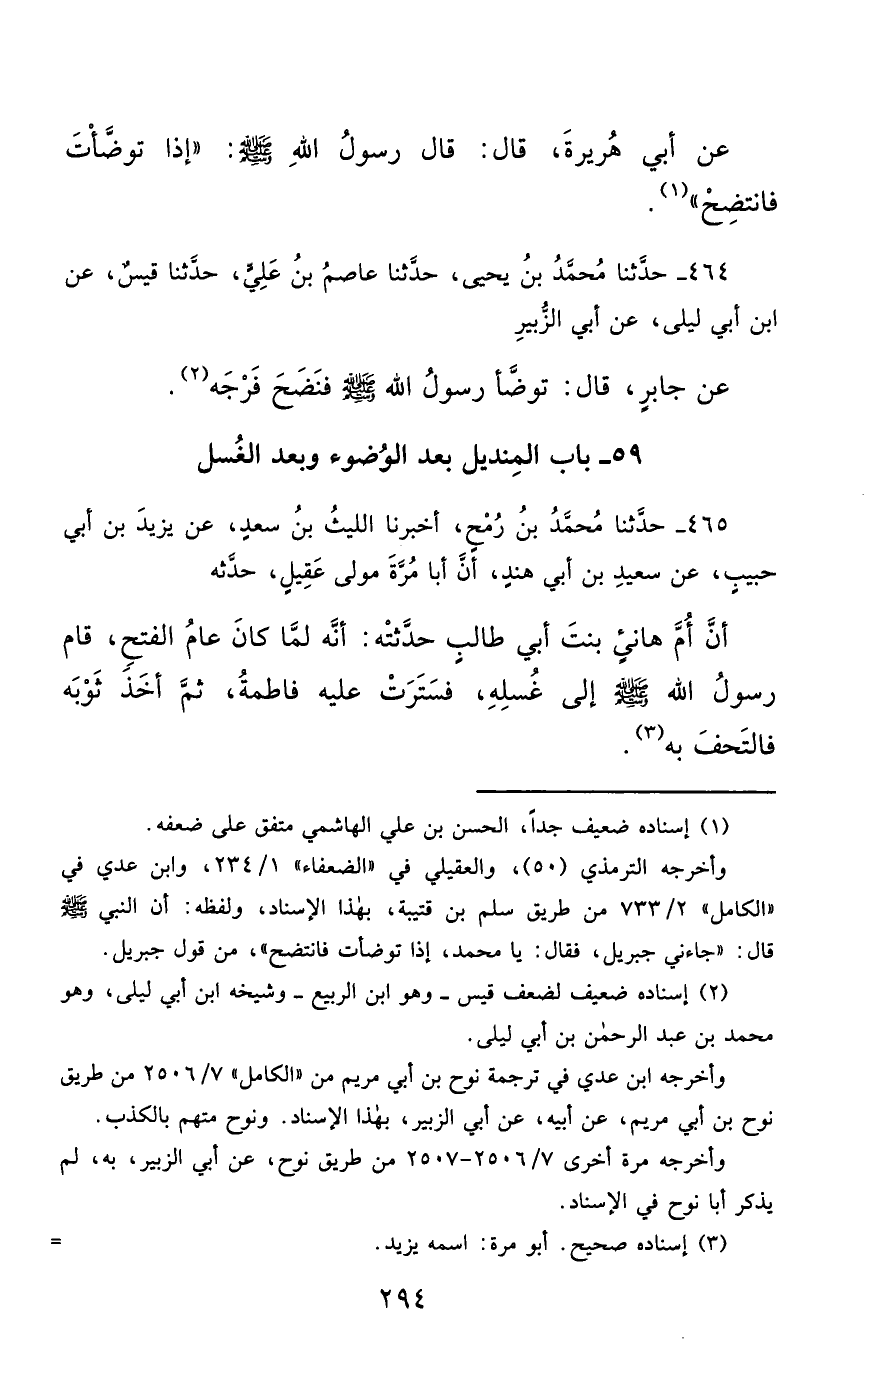 عن أبي هُريرةَ، قال: قال رسولُ اللهِ ﷺ: «إذا توضَّأْتَ
فانتضِحْ»(١).
٤٦٤ـ حدَّثنا مُحمَّدُ بنُ يحيى، حدَّثنا عاصمُ بنُ عَلِيٍّ، حدَّثنا قيسٌ، عن
ابن أبي ليلى، عن أبي الزُّبيرِ
عن جابرٍ، قال: توضَّأ رسولُ الله ﷺ فنَضَحَ فَرْجَه(٢).
٥٩ـ باب المِنديل بعد الوُضوء وبعد الغُسل
٤٦٥ـ حدَّثنا مُحمَّدُ بنُ رُمْحٍ، أخبرنا الليثُ بنُ سعدٍ، عن يزيدَ بن أبي
حبيبٍ، عن سعيدِ بن أبي هندٍ، أنَّ أبا مُرَّةَ مولى عَقِيلٍ، حدَّثه
أنَّ أُمَّ هانئٍ بنتَ أبي طالبٍ حدَّثتْه: أنَّه لمَّا كانَ عامُ الفتحِ، قام
رسولُ الله ﷺ إلى غُسلِهِ، فسَتَرَتْ عليه فاطمةُ، ثمَّ أخَذَ ثَوْبَه
فالتَحفَ به(٣).
(١) إسناده ضعيف جداً، الحسن بن علي الهاشمي متفق على ضعفه.
وأخرجه الترمذي (٥٠)، والعقيلي في «الضعفاء» ١/ ٢٣٤، وابن عدي في
«الكامل» ٢/ ٧٣٣ من طريق سلم بن قتيبة، بهٰذا الإسناد، ولفظه: أن النبي ﷺ
قال: «جاءني جبريل، فقال: يا محمد، إذا توضأت فانتضح»، من قول جبريل.
(٢) إسناده ضعيف لضعف قيس ـ وهو ابن الربيع ـ وشيخه ابن أبي ليلى، وهو
محمد بن عبد الرحمٰن بن أبي ليلى.
وأخرجه ابن عدي في ترجمة نوح بن أبي مريم من «الكامل» ٧/ ٢٥٠٦ من طريق
نوح بن أبي مريم، عن أبيه، عن أبي الزبير، بهٰذا الإسناد. ونوح متهم بالكذب.
وأخرجه مرة أخرى ٧/ ٢٥٠٦-٢٥٠٧ من طريق نوح، عن أبي الزبير، به، لم
يذكر أبا نوح في الإسناد.
(٣) إسناده صحيح. أبو مرة: اسمه يزيد. =
٢٩٤